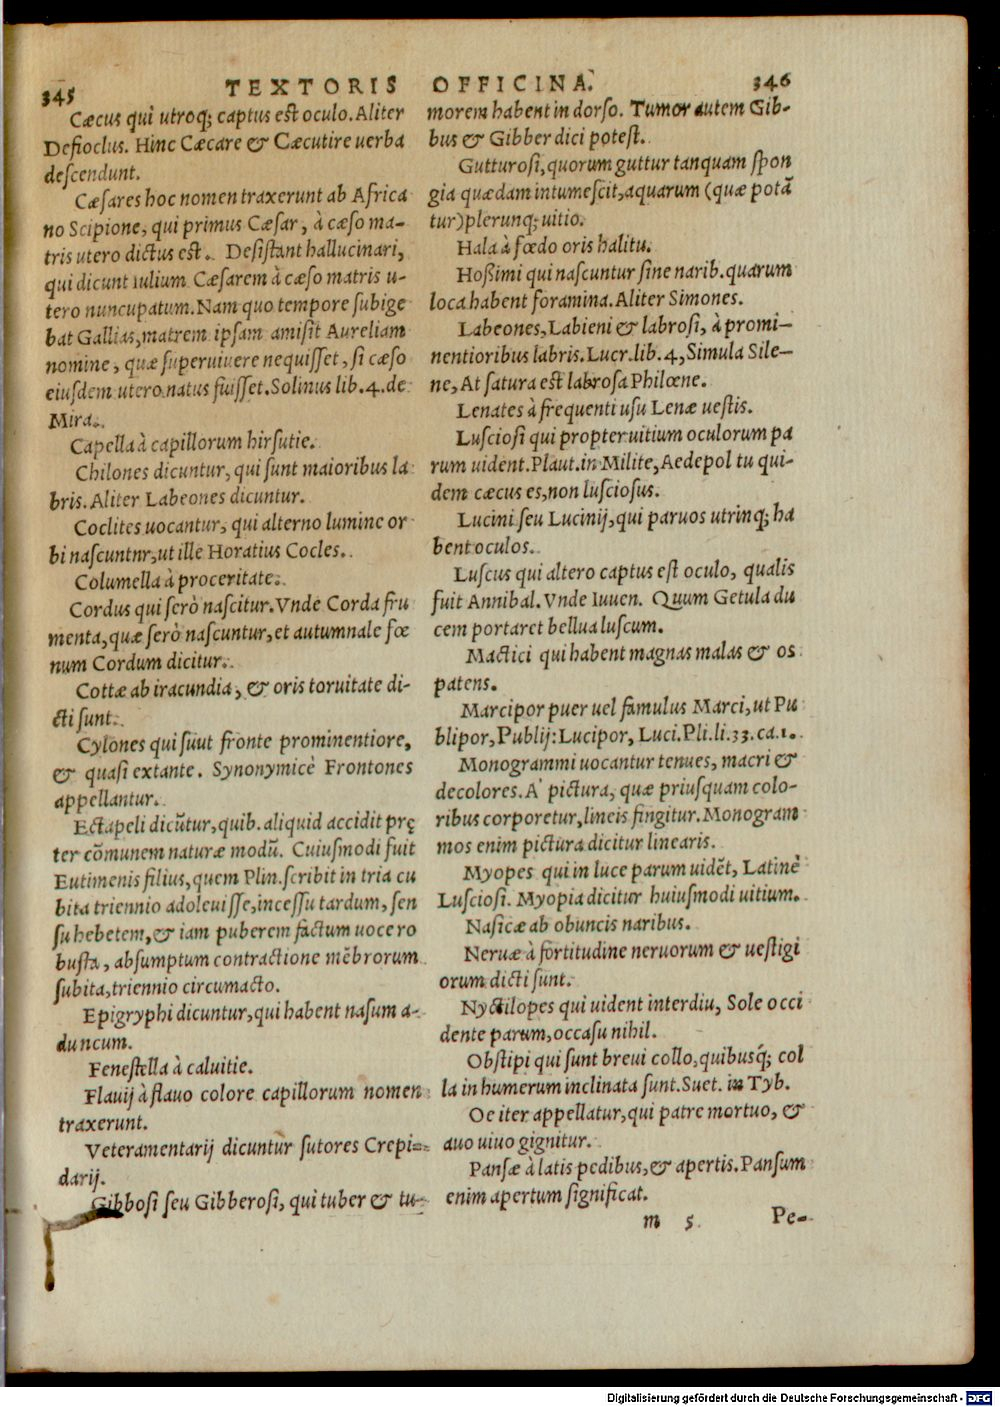 345 TEXTORIS OFFICINA. 346
Cæcus qui utroq; captus est oculo. Aliter
Defioclus. Hinc Cæcare & Cæcutire uerba
descendunt.
Cæsares hoc nomen traxerunt ab Africa
no Scipione, qui primus Cæsar, à cæso ma-
tris utero dictus est. Desistant hallucinari,
qui dicunt Iulium Cæsarem à cæso matris u-
tero nuncupatum. Nam quo tempore subige
bat Gallias, matrem ipsam amisit Aureliam
nomine, quæ superuiuere nequisset, si cæso
eiusdem utero natus fuisset. Solinus lib. 4. de
Mira.
Capella à capillorum hirsutie.
Chilones dicuntur, qui sunt maioribus la
bris. Aliter Labeones dicuntur.
Coclites uocantur, qui alterno lumine or
bi nascuntnr, ut ille Horatius Cocles.
Columella à proceritate.
Cordus qui serò nascitur. Vnde Corda fru
menta, quæ serò nascuntur, et autumnale fœ
num Cordum dicitur.
Cottæ ab iracundia, & oris toruitate di-
cti sunt.
Cylones qui suut fronte prominentiore,
& quasi extante. Synonymicè Frontones
appellantur.
Ectapeli dicũtur, quib. aliquid accidit prę
ter cõmunem naturæ modũ. Cuiusmodi fuit
Eutimenis filius, quem Plin. scribit in tria cu
bita triennio adoleuisse, incessu tardum, sen
su hebetem, & iam puberem factum uoce ro
busta, absumptum contractione mẽbrorum
subita, triennio circumacto.
Epigryphi dicuntur, qui habent nasum a-
duncum.
Fenestella à caluitie.
Flauij à flauo colore capillorum nomen
traxerunt.
Veteramentarij dicuntur sutores Crepi-
darij.
Gibbosi seu Gibberosi, qui tuber & tu-
morem habent in dorso. Tumor autem Gib-
bus & Gibber dici potest.
Gutturosi, quorum guttur tanquam spon
gia quædam intumescit, aquarum (quæ potã
tur) plerunq; uitio.
Hala à fœdo oris halitu.
Hoßimi qui nascuntur sine narib. quarum
loca habent foramina. Aliter Simones.
Labeones, Labieni & labrosi, à promi-
nentioribus labris. Lucr. lib. 4, Simula Sile-
ne, At satura est labrosa Philœne.
Lenates à frequenti usu Lenæ uestis.
Lusciosi qui propter uitium oculorum pa
rum uident. Plaut. in Milite, Aedepol tu qui-
dem cæcus es, non lusciosus.
Lucini seu Lucinij, qui paruos utrinq; ha
bent oculos.
Luscus qui altero captus est oculo, qualis
fuit Annibal. Vnde Iuuen. Quum Getula du
cem portaret bellua luscum.
Mactici qui habent magnas malas & os
patens.
Marcipor puer uel famulus Marci, ut Pu
blipor, Publij: Lucipor, Luci. Pli. li. 33. ca. 1.
Monogrammi uocantur tenues, macri &
decolores. A' pictura, quæ priusquam colo-
ribus corporetur, lineis fingitur. Monogram
mos enim pictura dicitur linearis.
Myopes qui in luce parum uidẽt, Latinè
Lusciosi. Myopia dicitur huiusmodi uitium.
Nasicæ ab obuncis naribus.
Neruæ à fortitudine neruorum & uestigi
orum dicti sunt.
Nyctilopes qui uident interdiu, Sole occi
dente parum, occasu nihil.
Obstipi qui sunt breui collo, quibusq́; col
la in humerum inclinata sunt. Suet. in Tyb.
Oe iter appellatur, qui patre mortuo, &
auo uiuo gignitur.
Pansæ à latis pedibus, & apertis. Pansum
enim apertum significat.
m 5 Pe-
Digitalisierung gefördert durch die Deutsche Forschungsgemeinschaft - DFG